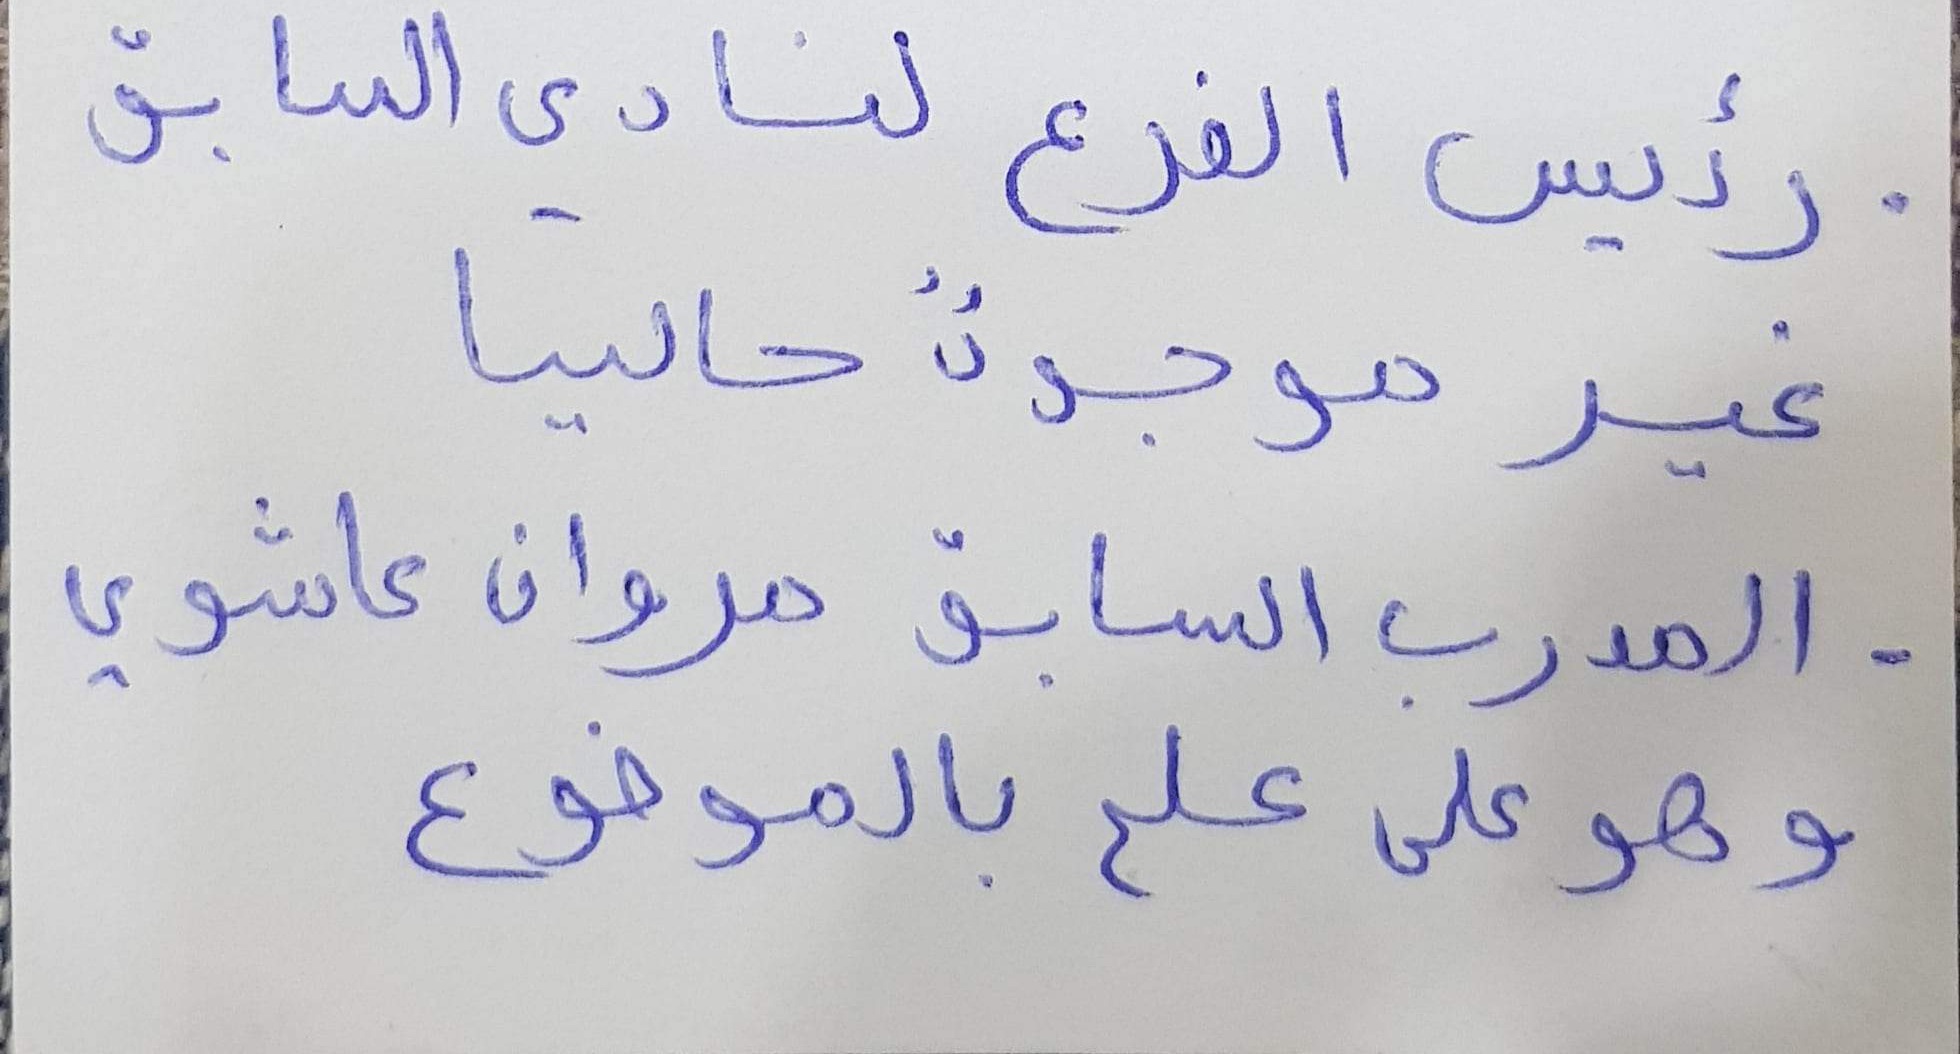 . رئيس الفرع لنادي السابق
غير موجودٌ حاليا
- المدرب السابق مروان عاشوي
وهو على علم بالموضوع